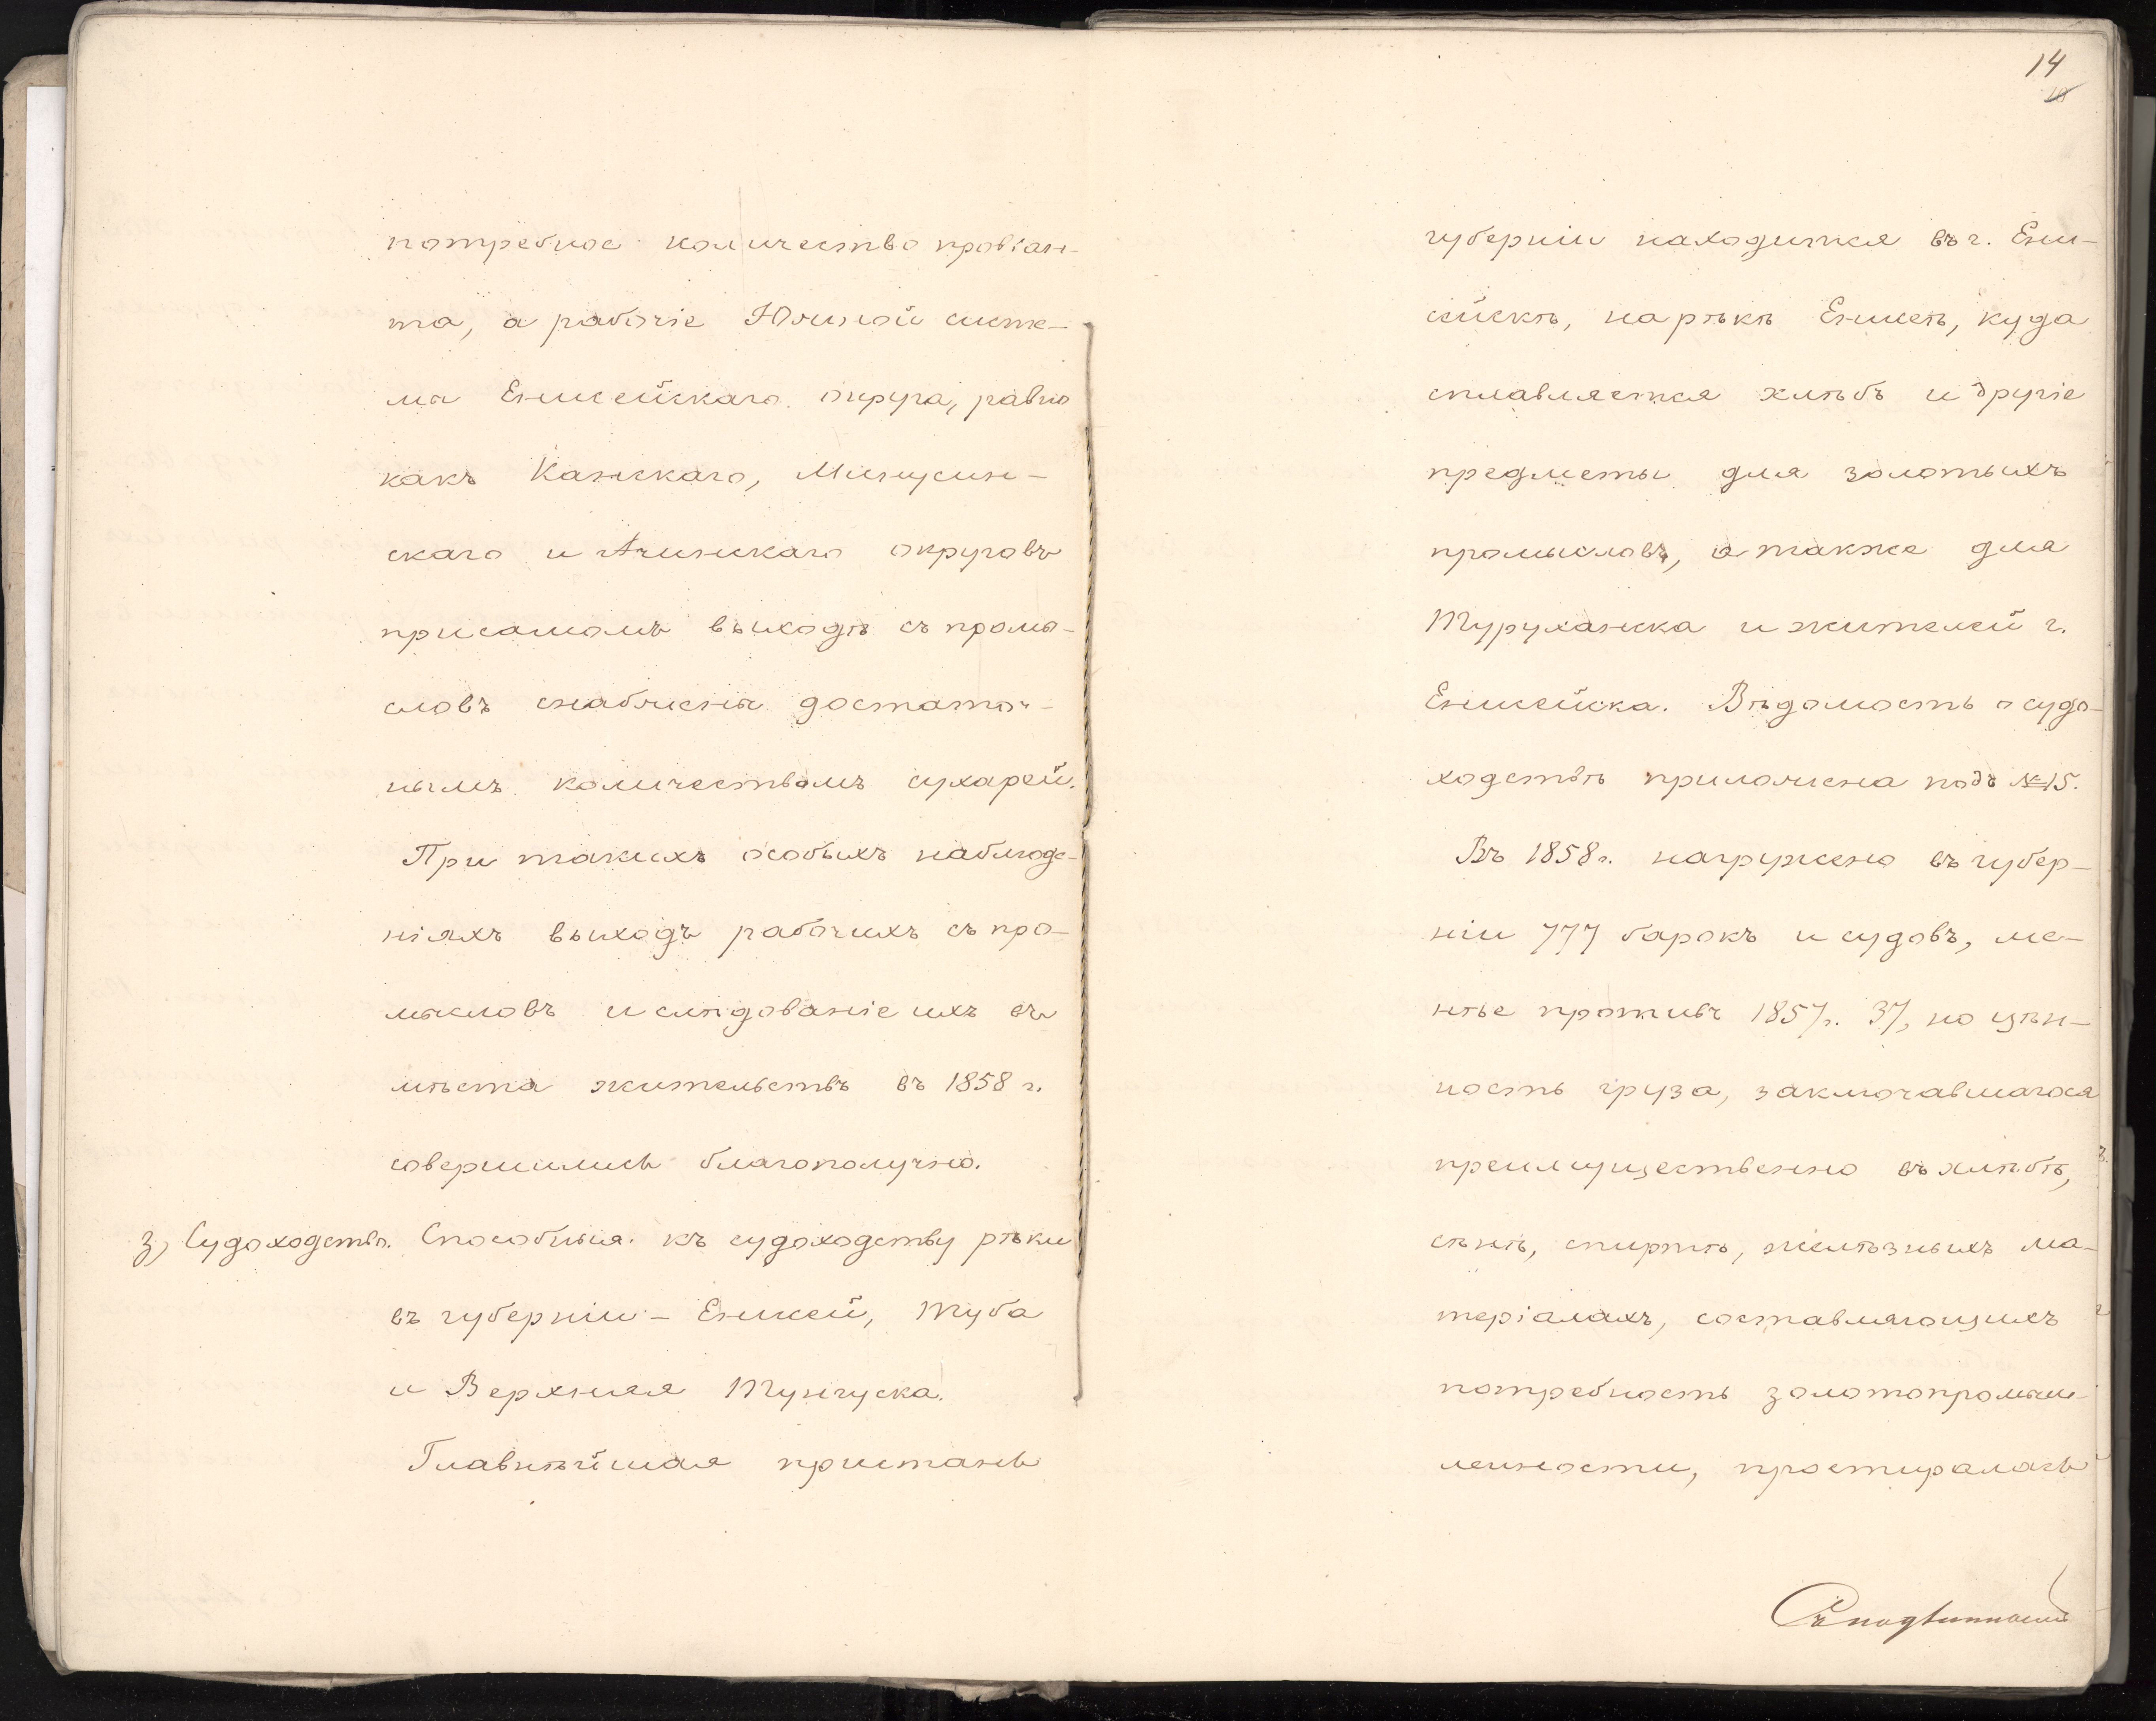 потребное количество провіан-
та, а рабочіе Южной систе-
мы Енисейскаго округа, равно
какъ Канскаго, Минусин-
скаго и Ачинскаго округовъ
при самомъ выходѣ съ промы-
словъ снабжены достаточ-
нымъ количествомъ сухарей.
При такихъ особыхъ наблюде-
ніяхъ выходъ рабочихъ съ про-
мысловъ и слѣдованіе ихъ въ
мѣста жительствъ въ 1858 г.
совершились благополучно.
з) Судоходство. Способныя къ судоходству рѣки
въ губерніи - Енисей, Туба
и Верхняя Тунгуска.
Главнѣйшая пристань
14
губерніи находится въ г. Ени-
сейскѣ, на рѣкѣ Енисеѣ, куда
сплавляется хлѣбъ и другіе
предметы для золотыхъ
промысловъ, а также для
Туруханска и жителей г.
Енисейска. Вѣдомость о судо-
ходствѣ приложена подъ № 15.
Въ 1858 г. нагружено въ губер-
ніи 777 барокъ и судовъ, ме-
нѣе противъ 1857 г. 37, но цѣн-
ность груза, заключавшагося
преимущественно въ хлѣбѣ,
сѣнѣ, спиртѣ, желѣзныхъ ма-
теріалахъ, составляющихъ
потребность золотопромыш-
ленности, простиралась
Съ подлиннымъ